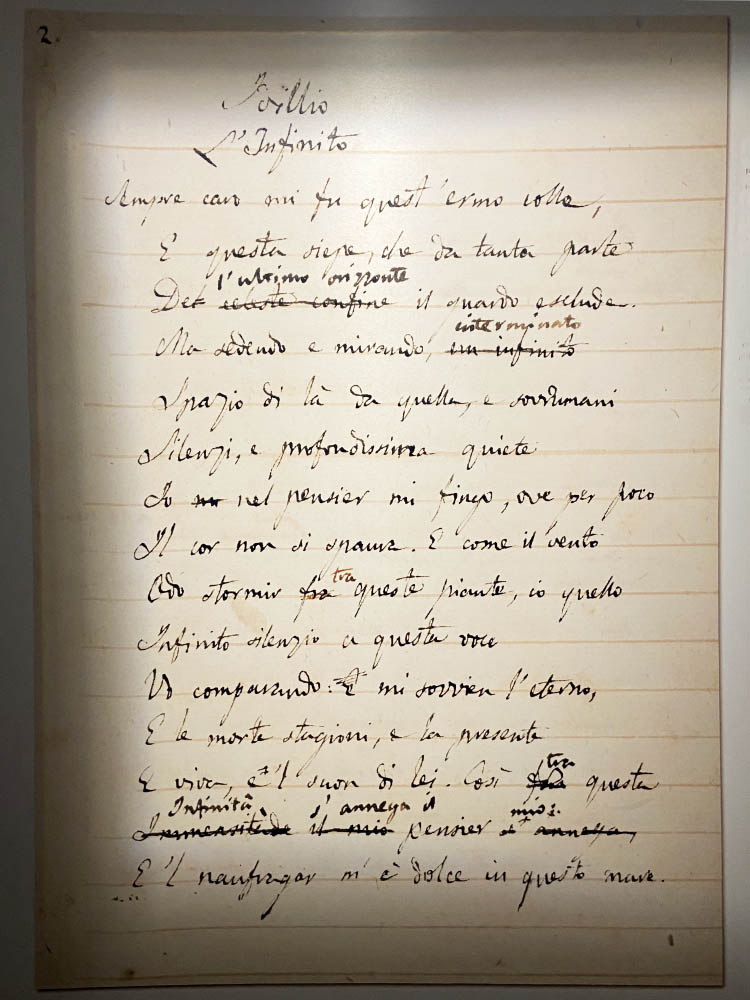 2.
Idillio
L'Infinito
Sempre caro mi fu quest'ermo colle,
E questa siepe, che da tanta parte
l'ultimo orizzonte
Del celeste confine il guardo esclude.
interminato
Ma sedendo e mirando, un infinito
Spazio di là da quella, e sovrumani
Silenzi, e profondissima quiete
Io nel pensier mi fingo, ove per poco
Il cor non si spaura. E come il vento
Odo stormir fra tra queste piante, io quello
Infinito silenzio a questa voce
Vo comparando: E mi sovvien l'eterno,
E le morte stagioni, e la presente
tra
E viva, e 'l suon di lei. Così fra questa
Infinità s'annega il mio:
Immensitade il mio pensier s'annega,
E 'l naufragar m'è dolce in questo mare.